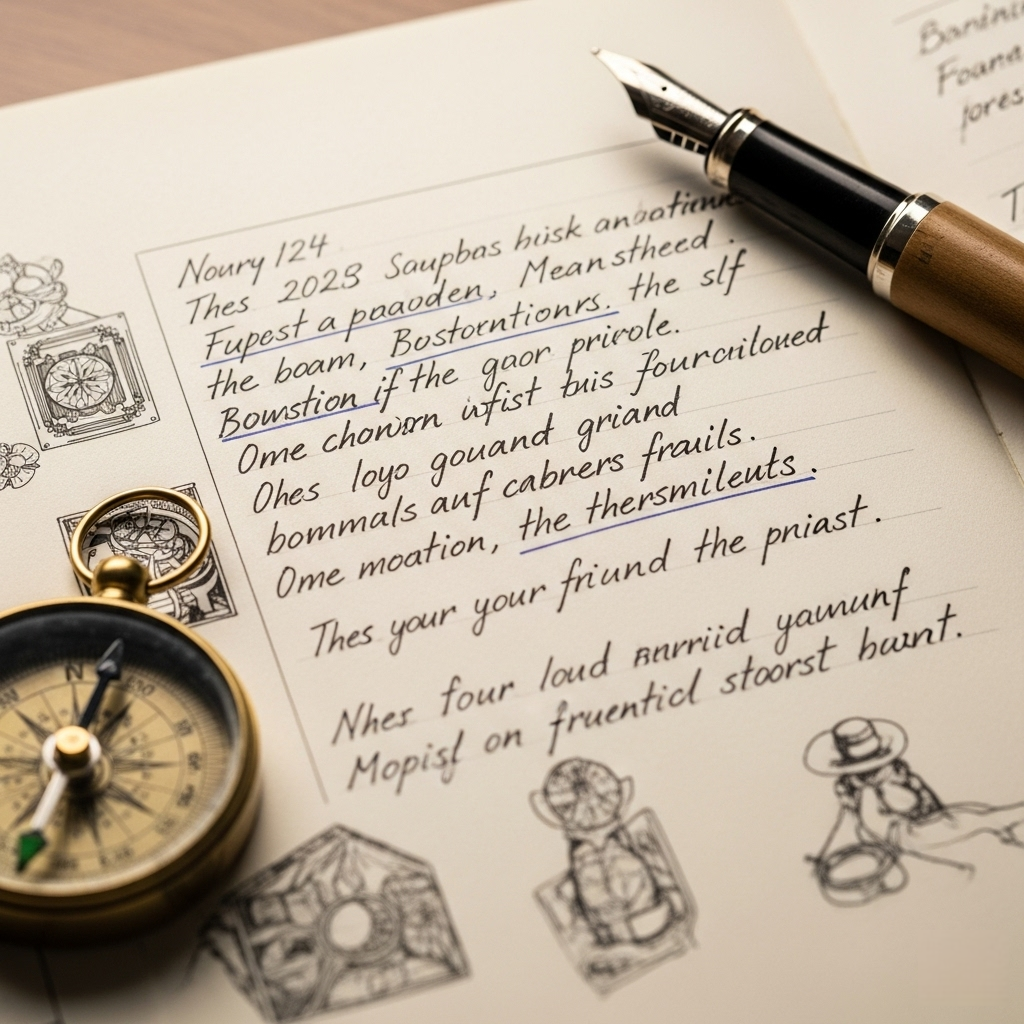 Noury 124
Thes 2023 Saupbas hisk
Fupest a paaoden, Mean stheed.
the boam, Bostorntionrs. the slf
Bowstion if the gaor prirole.
Ome chowrn wfist bus fourcriloued
Ohes loyo gouand griand
bommals auf cabrers frauils.
Ome moation, the thersmileuts.
Thes your your friund the pniast.
Nher four loud yawunf
Mopisl on fruenticl stoorst buunt.
Foann
N